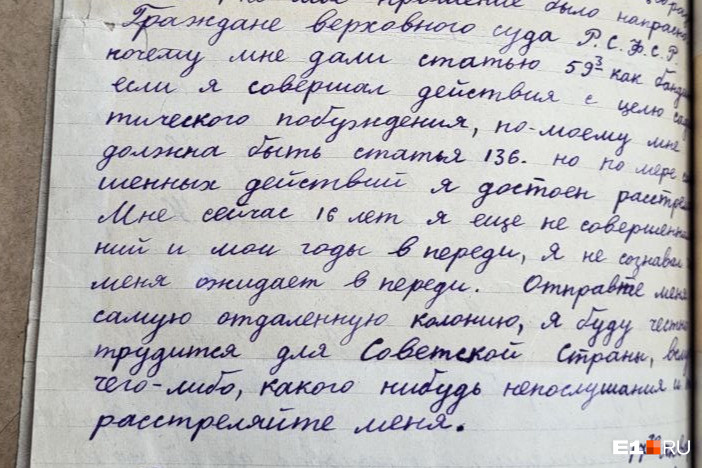 прошение было направле
Граждане верховного суда Р.С.Ф.С.Р.
почему мне дали статью 59³ как банди
если я совершал действия с целю сад
тического побуждения, по-моему мне
должна быть статья 136. но по мере с
шенных действий я достоен расстрел
Мне сейчас 16 лет я еще не совершенно
ний и мои годы в переди, я не сознавал
меня ожидает в переди. Отправте меня
самую отдаленную колонию, я буду честно
трудится для Советской Страны, всл
чего-либо, какого нибудь непослушания и
расстреляйте меня.
E1.RU